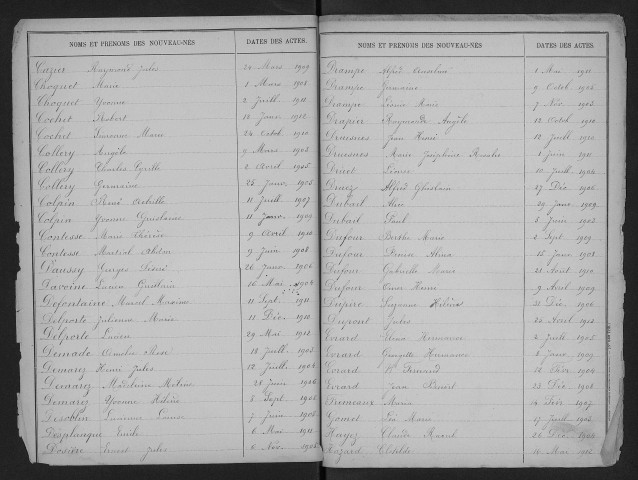 NOMS ET PRÉNOMS DES NOUVEAU-NÉS DATES DES ACTES.
Raymond Jules 24 Mars 1909
Choquet Marie 1 Mars 1908
Choquet Yvonne 2 Juill. 1911
Cochet Robert 12 Janv. 1912
Cochet Marie 24 Octob. 1910
Collery Angèle 9 Mars 1903
Collery Charles Cyrille 2 Avril 1905
Collery Germaine 25 Janv. 1903
Colpin René Achille 11 Juill. 1907
Colpin Yvonne Ghislaine 11 Janv. 1909
Contesse Marie Thérèse 9 Avril 1910
Contesse Martial 9 Juin 1908
Daussy Georges 26 Janv. 1906
Davoine Lucien Ghislain 16 Mai 1904
Defontaine Marcel 11 Sept. 1911
Delporte Julienne Marie 11 Déc. 1910
Delporte Lucien 29 Mai 1912
Demade 18 Juill. 1903
Demarez Henri Jules 12 Juill. 1908
Demarez Madeleine 28 Juin 1906
Demarez Yvonne Hélène 8 Sept. 1906
Desoblin Louise 7 Juin 1906
Desplanque Emile 6 Mai 1911
Dosière Ernest Jules 6 Nov.
NOMS ET PRÉNOMS DES NOUVEAU-NÉS DATES DES ACTES.
Drampe Alfred Anselme 1 Mai 1911
Drampe Germaine 9 Octob.
Drampe Marie 7 Nov. 1903
Drapier Raymonde Angèle 12 Octob. 1910
Druesnes Jean Henri 12 Juill. 1910
Druesnes Marie Joséphine 1 Juin 1911
Léonie 10 Juill.
Druez Alfred Ghislain 27 Déc. 1906
Dubail Alice 29 Janv. 1909
Dubail Paul 5 Juin 1903
Dufour Berthe Marie 2 Sept. 1909
Dufour 15 Janv. 1908
Dufour Gabrielle Marie 21 Août 1910
Dufour Omer Henri 9 Avril 1909
Dupire Suzanne Hélène 31 Déc. 1906
Dupont Jules 24 Avril
Evrard Elina 2 Juill. 1905
Evrard Georgette 8 Janv. 1909
Evrard Fernand 12 Févr. 1904
Evrard Jean Benoit 23 Déc. 1908
Maria 14 Févr. 1907
Léa Marie 17 Juill. 1903
Hayez Claude Raoul 26 Déc.
Hazard Clotilde 10 Mai